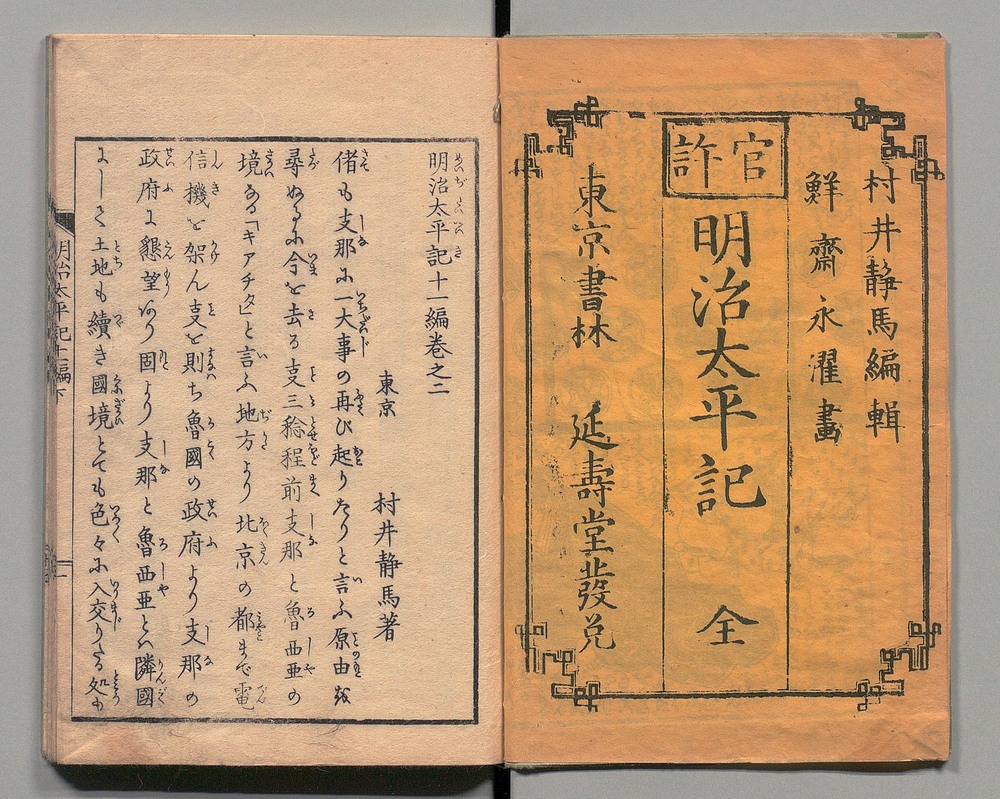 村井静馬編輯
鮮齋永濯畫
官許
明治太平記 全
東京書林 延壽堂發兌
明治太平記十一編巻之二
東京 村井静馬著
偖も支那に一大事の再び起りたりと言ふ原由を
尋ぬるに今を去る支三稔程前支那と魯西亜の
境なる「キアチタ」と言ふ地方より北京の都まで電
信機を架ん支を則ち魯國の政府より支那の
政府に懇望あり固より支那と魯西亜とハ隣國
にして土地も續き國境とても色々に入交りたる処も
明治太平記十一編下